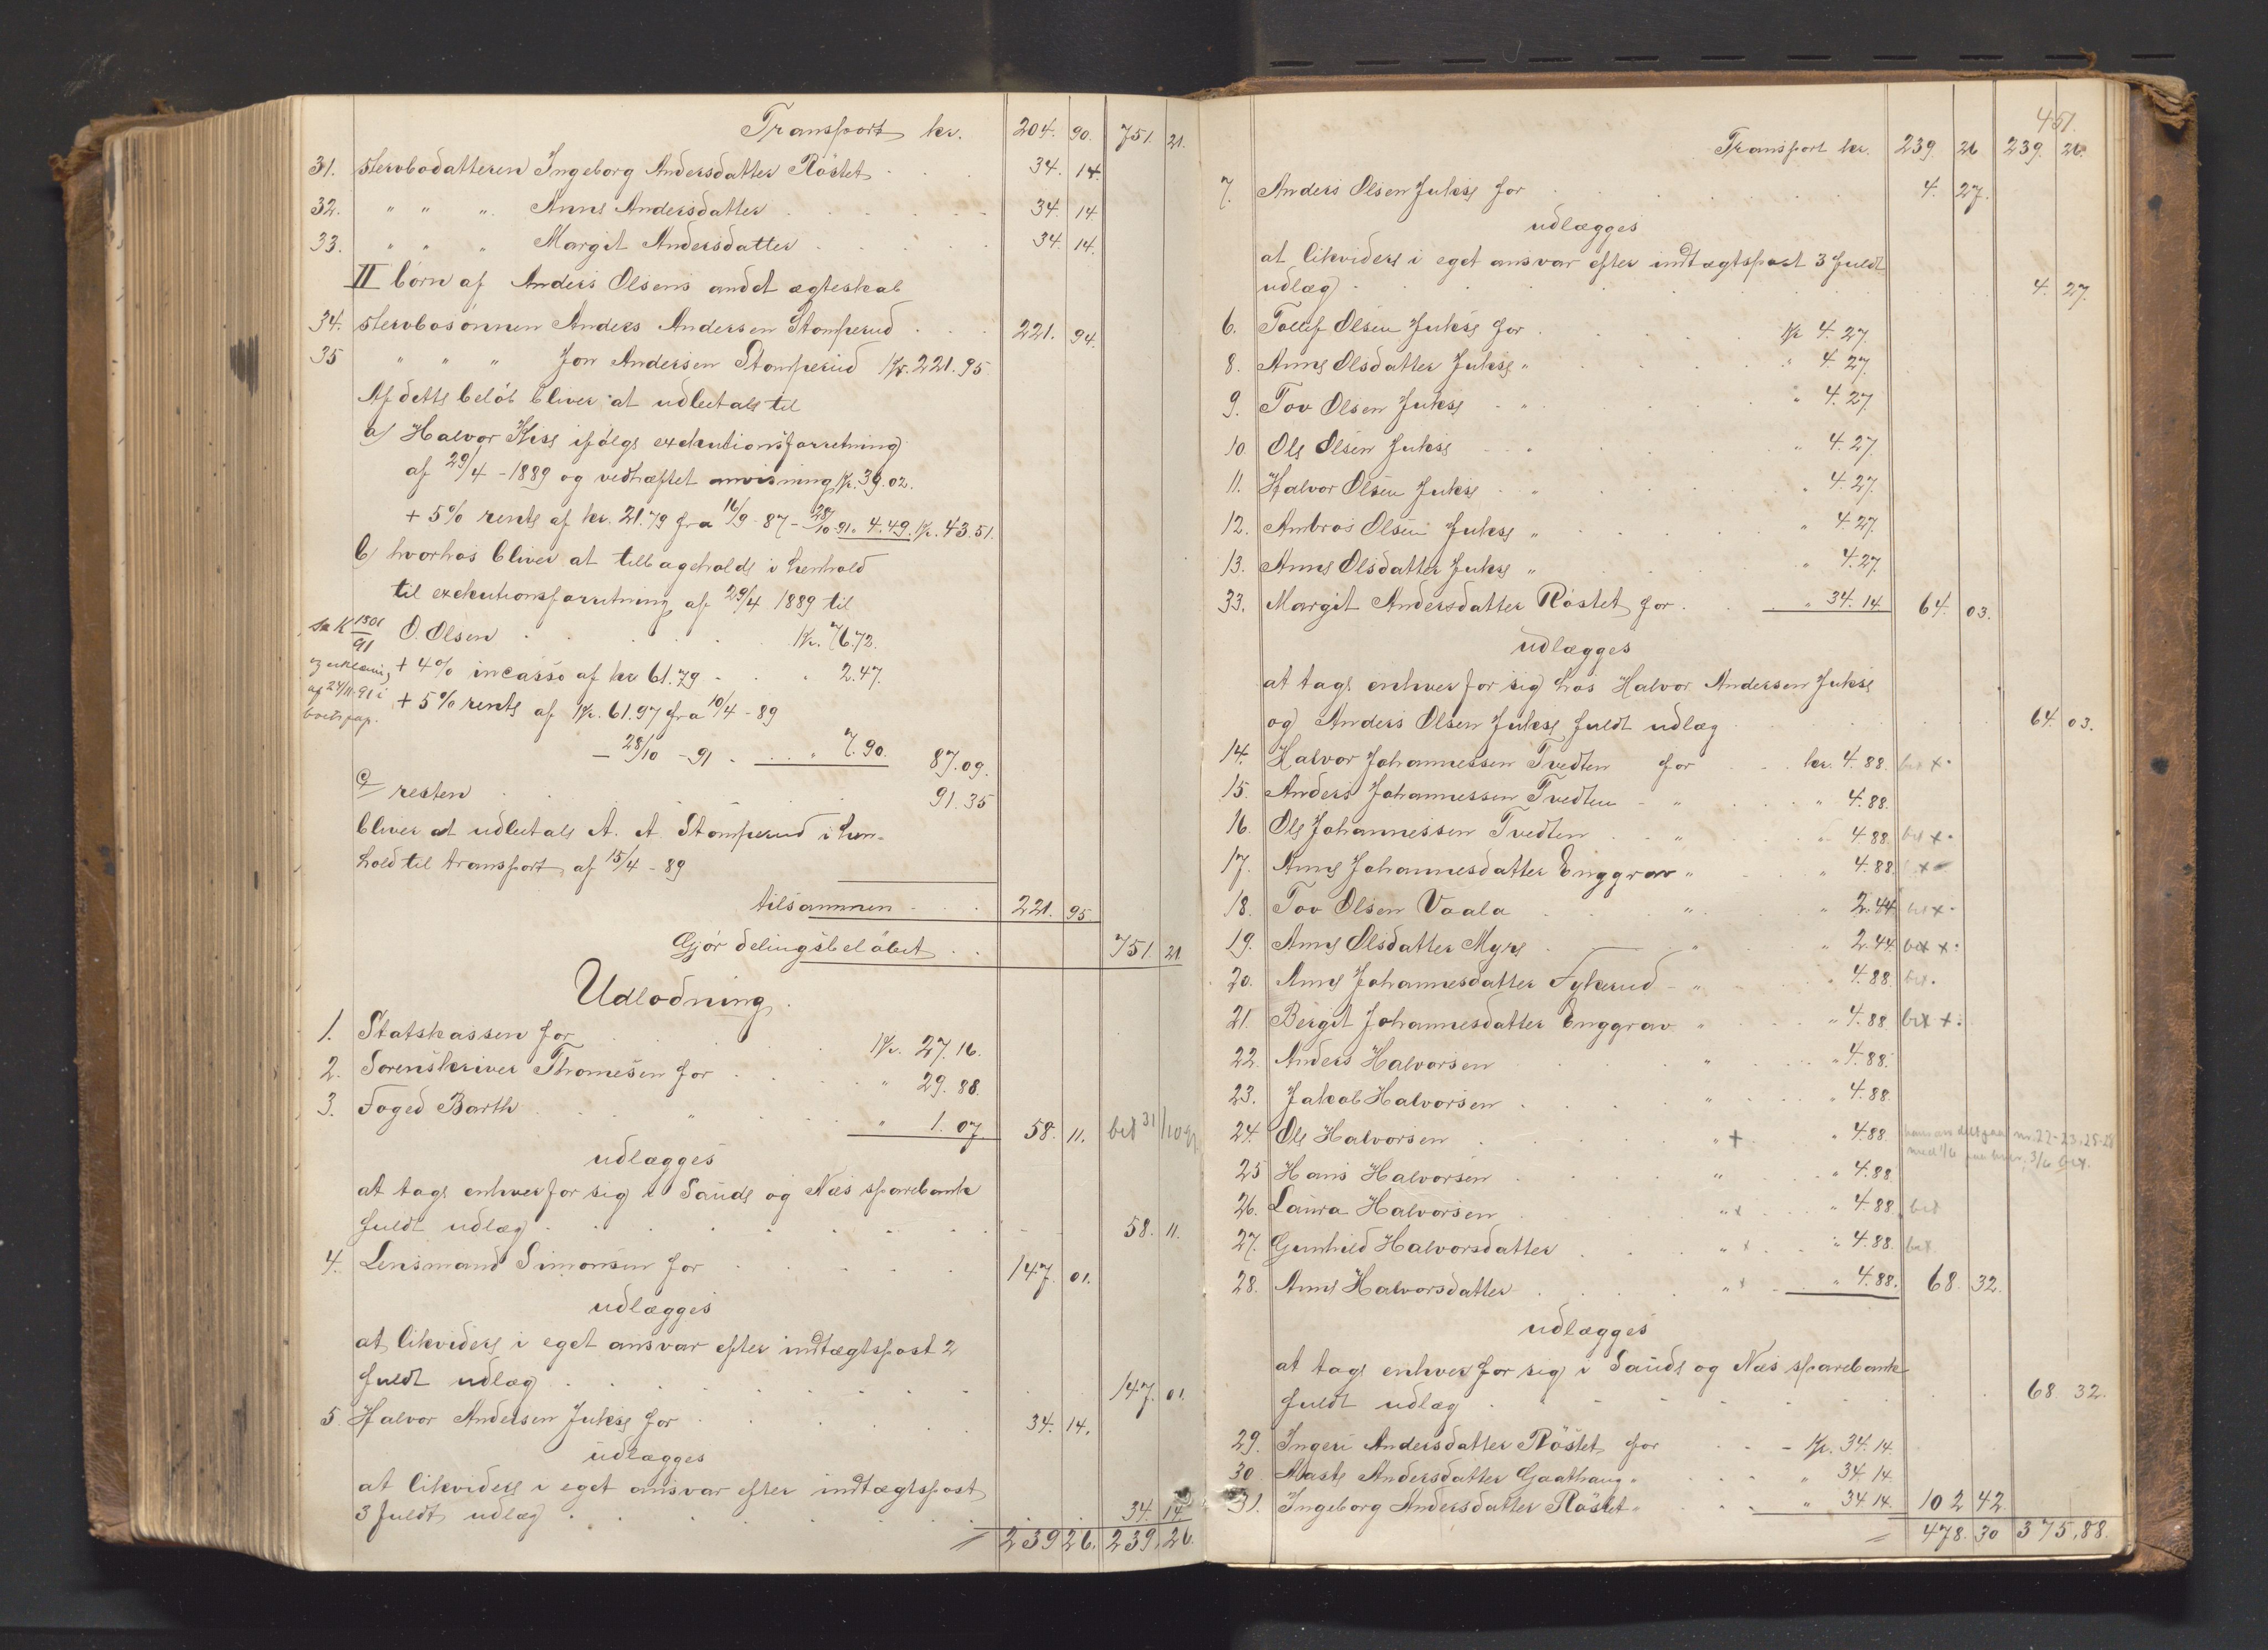 Transport kr. 204. 90. 751. 21.
31. Stervbodatteren Ingeborg Andersdatter Röstet . . . 34. 14.
32. " " " Anne Andersdatter . . . 34. 14.
33. " " " Margit Andersdatter . . . 34. 14.
II börn af Anders Olsens andet ægteskab
34. Stervbosönnen Anders Andersen Stomperud . . . 221. 94.
35 " " " Jon Andersen Stomperud Kr. 221. 95
Af dette belöb bliver at udbetale til
a) Halvor Kise ifölge exekutionsforretning
af 29/4 - 1889 og vedhæftet anvisning Kr. 39.02.
+ 5% rente af kr. 21.79 fra 16/9 - 87 - 28/10 91. 4.49. Kr. 43.51.
b) hvorhos bliver at tilbageholde i henhold
til exekutionsforretning af 29/4 1889 til
O. Olsen . . . Kr. 76.72.
+ 4% incasso af kr 61.79 . . . " 2.47.
+ 5% rente af Kr. 61.97 fra 10/4 - 89
- 28/10 - 91 . . . " 7.90. 87.09.
c/ resten . . . 91.35
bliver at udbetale A. A. Stomperud i hen-
hold til transport af 15/4 - 89
tilsammen . . . 221. 95
Gjör delingsbelöbet . . 751. 21
Udlodning.
1. Statskassen for . . . Kr. 27.16.
2. Sorenskriver Thomesen for . . . " 29.88.
3. Foged Barth " . . . " 1.07 58. 11. bet 31/10 91
udlægges
at tage enhver for sig i Saude og Næs sparebank
fuldt udlæg . . . 58. 11.
4. Lensmand Simonsen for . . . 147. 01.
udlægges
at likvidere i eget ansvar efter indtægtspost 2
fuldt udlæg . . . 147. 01.
5. Halvor Andersen Jukse for . . . 34. 14.
udlægges
at likvidere i eget ansvar efter indtægtspost
3 fuldt udlæg . . . 34. 14
239 26. 239. 26.
451.
Transport kr. 239. 26 239. 26.
7. Anders Olsen Jukse for . . . 4. 27.
udlægges
at likvidere i eget ansvar efter indtægtspost 3 fuldt
udlæg . . . 4. 27.
6. Tollef Olsen Jukse for . . . Kr 4.27.
8. Anne Olsdatter Jukse " . . . " 4.27.
9. Tov Olsen Jukse " . . . " 4.27.
10 Ole Olsen Jukse " . . . " 4.27.
11. Halvor Olsen Jukse " . . . " 4.27.
12. Ambros Olsen Jukse " . . . " 4.27.
13. Anne Olsdatter Jukse " . . . " 4.27.
33. Margit Andersdatter Röstet for . . . " 34.14 64. 03.
udlægges
at tage enhver for sig hos Halvor Andersen Jukse
og Anders Olsen Jukse fuldt udlæg . . . 64. 03.
14. Halvor Johannessen Tvedten for . . . kr. 4.88. bet x
15. Anders Johannessen Tvedten " . . . " 4.88.
16. Ole Johannessen Tvedten " . . . " 4.88 bet x
17. Anne Johannesdatter Enggrav " . . . " 4.88. x
18. Tov Olsen Vaala " . . . " 2.44 bet x
19. Anne Olsdatter Myre " . . . " 2.44 bet x
20. Anne Johannesdatter Fykerud " . . . " 4.88. bet.
21. Bergit Johannesdatter Enggrav " . . . " 4.88 bet +
22. Anders Halvorsen " . . . " 4.88.
23. Jakob Halvorsen " . . . " 4.88.
24. Ole Halvorsen " + . . . " 4.88. nr. 22-23-25-28
25 Hans Halvorsen " . . . " 4.88. med 1/6 3/6 bet.
26. Laura Halvorsen " x . . . " 4.88. bet
27. Gunhild Halvorsdatter " x . . . " 4.88. bet.
28. Anne Halvorsdatter " x . . . " 4.88. 68. 32.
udlægges
at tage enhver for sig i Saude og Næs sparebank
fuldt udlæg . . . 68. 32.
29. Ingeri Andersdatter Röstet for . . . Kr. 34.14.
30. Aaste Andersdatter Gaathaug " . . . " 34.14.
31. Ingeborg Andersdatter Röstet " . . . " 34.14. 102 42
478. 30 375,88.